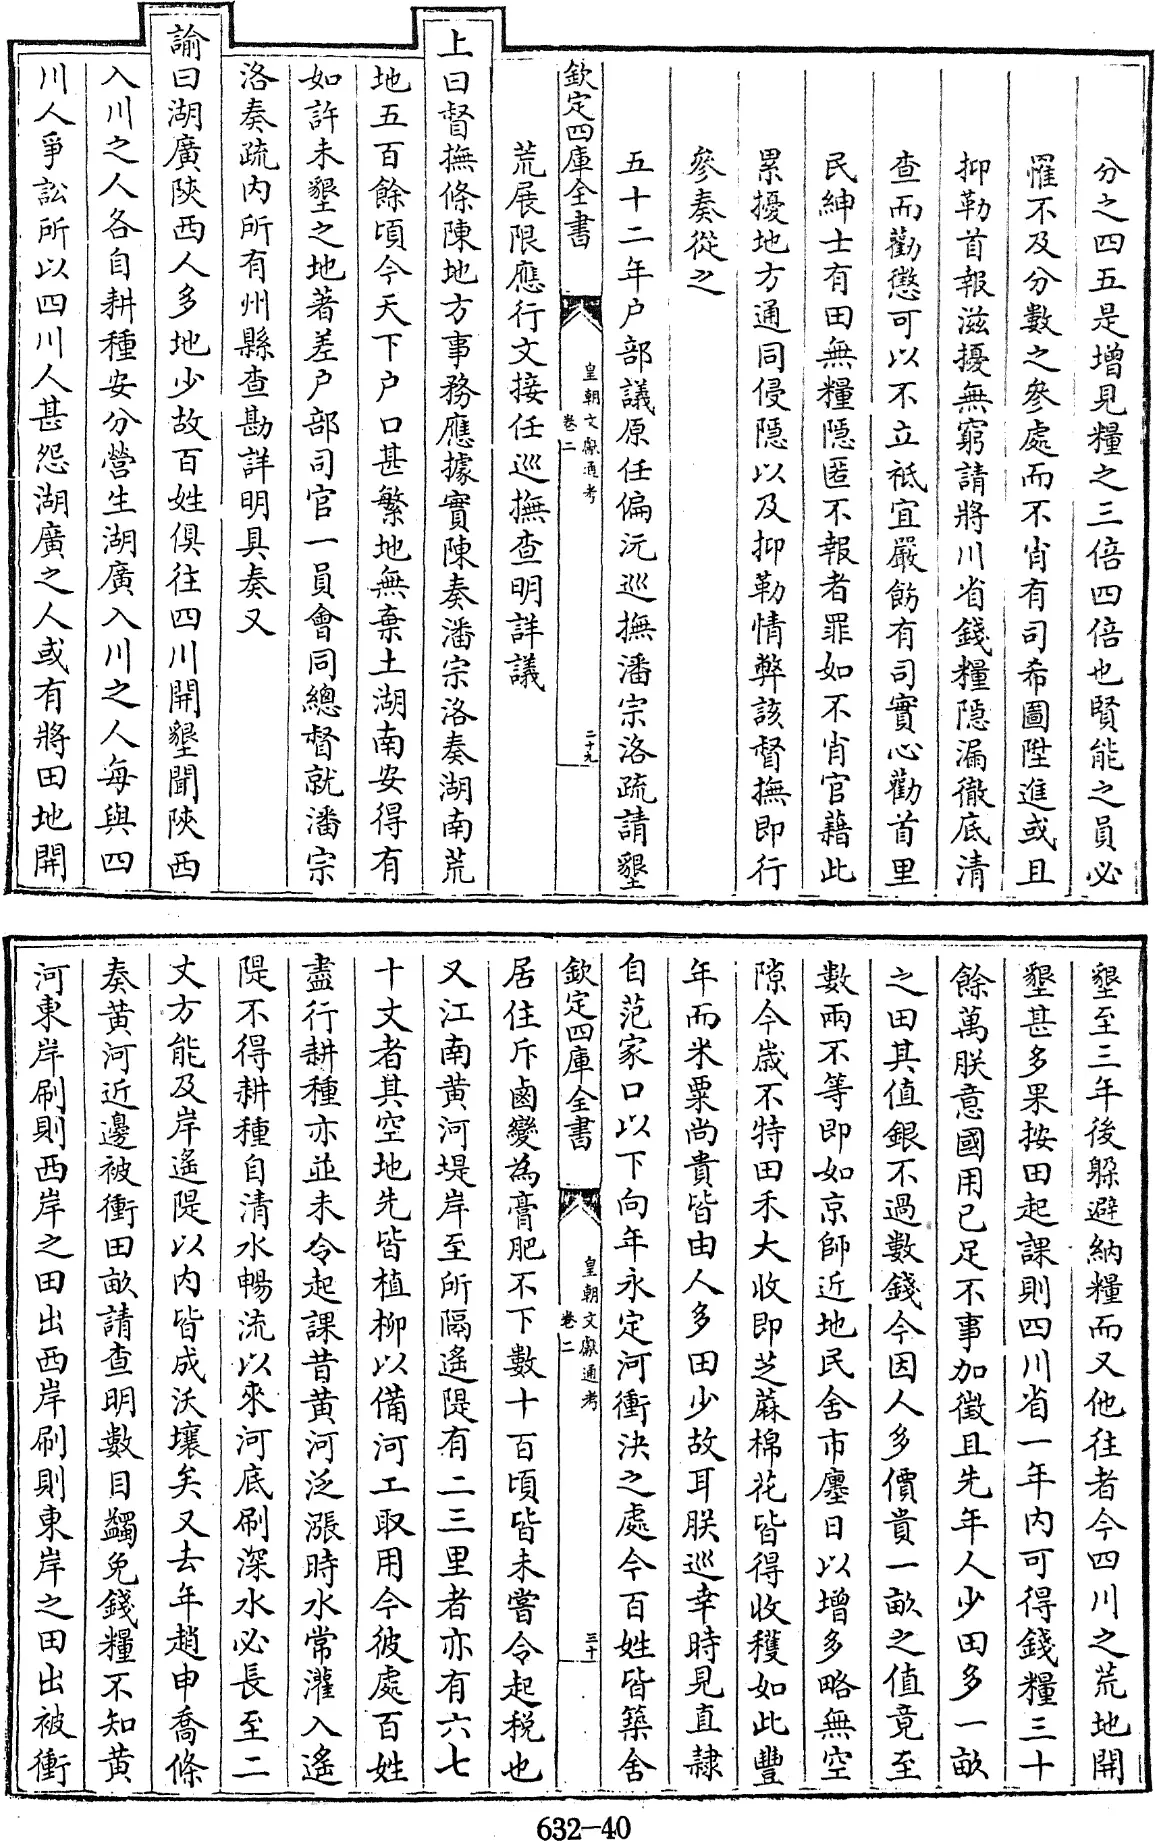 分之四五是增見糧之三倍四倍也賢能之員必
罹不及分數之參處而不肖有司希圖陞進或且
抑勒首報滋擾無窮請將川省錢糧隱漏徹底清
查而勸懲可以不立祗宜嚴飭有司實心勸首里
民紳士有田無糧隱匿不報者罪如不肖官藉此
累擾地方通同侵隱以及抑勒情弊該督撫即行
參奏從之
五十二年户部議原任偏沅巡撫潘宗洛疏請墾
欽定四庫全書
皇朝文獻通考
卷二
二十九
荒展限應行文接任巡撫查明詳議
上曰督撫條陳地方事務應據實陳奏潘宗洛奏湖南荒
地五百餘頃今天下户口甚繁地無棄土湖南安得有
如許未墾之地著差户部司官一員會同總督就潘宗
洛奏疏内所有州縣查勘詳明具奏又
諭曰湖廣陝西人多地少故百姓俱往四川開墾聞陝西
入川之人各自耕種安分營生湖廣入川之人每與四
川人爭訟所以四川人甚怨湖廣之人或有將田地開
墾至三年後躲避納糧而又他往者今四川之荒地開
墾甚多果按田起課則四川省一年内可得錢糧三十
餘萬朕意國用已足不事加徵且先年人少田多一畝
之田其值銀不過數錢今因人多價貴一畝之值竟至
數兩不等即如京師近地民舍市廛日以增多略無空
隙今歲不特田禾大收即芝蔴棉花皆得收穫如此豐
年而米粟尚貴皆由人多田少故耳朕巡幸時見直隸
自范家口以下向年永定河衝決之處今百姓皆築舍
欽定四庫全書
皇朝文獻通考
卷二
三十
居住斥鹵變為膏肥不下數十百頃皆未嘗令起税也
又江南黄河堤岸至所隔遙隄有二三里者亦有六七
十丈者其空地先皆植柳以備河工取用今彼處百姓
盡行耕種亦並未令起課昔黄河泛漲時水常灌入遙
隄不得耕種自清水暢流以來河底刷深水必長至二
丈方能及岸遙隄以内皆成沃壤矣又去年趙申喬條
奏黄河近邊被衝田畝請查明數目蠲免錢糧不知黄
河東岸刷則西岸之田出西岸刷則東岸之田出被衝
632-40